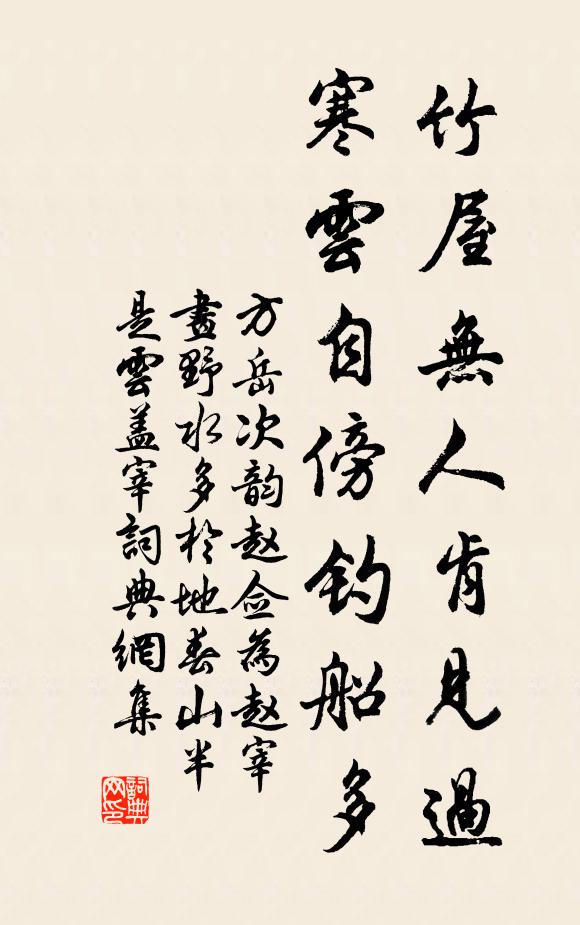 竹屋無人肯見過
寒雲自傍釣船多
方岳次韵赵佥為赵宰
畫野水多於地春山半
是雲盖宰詞典網集
詞典網印